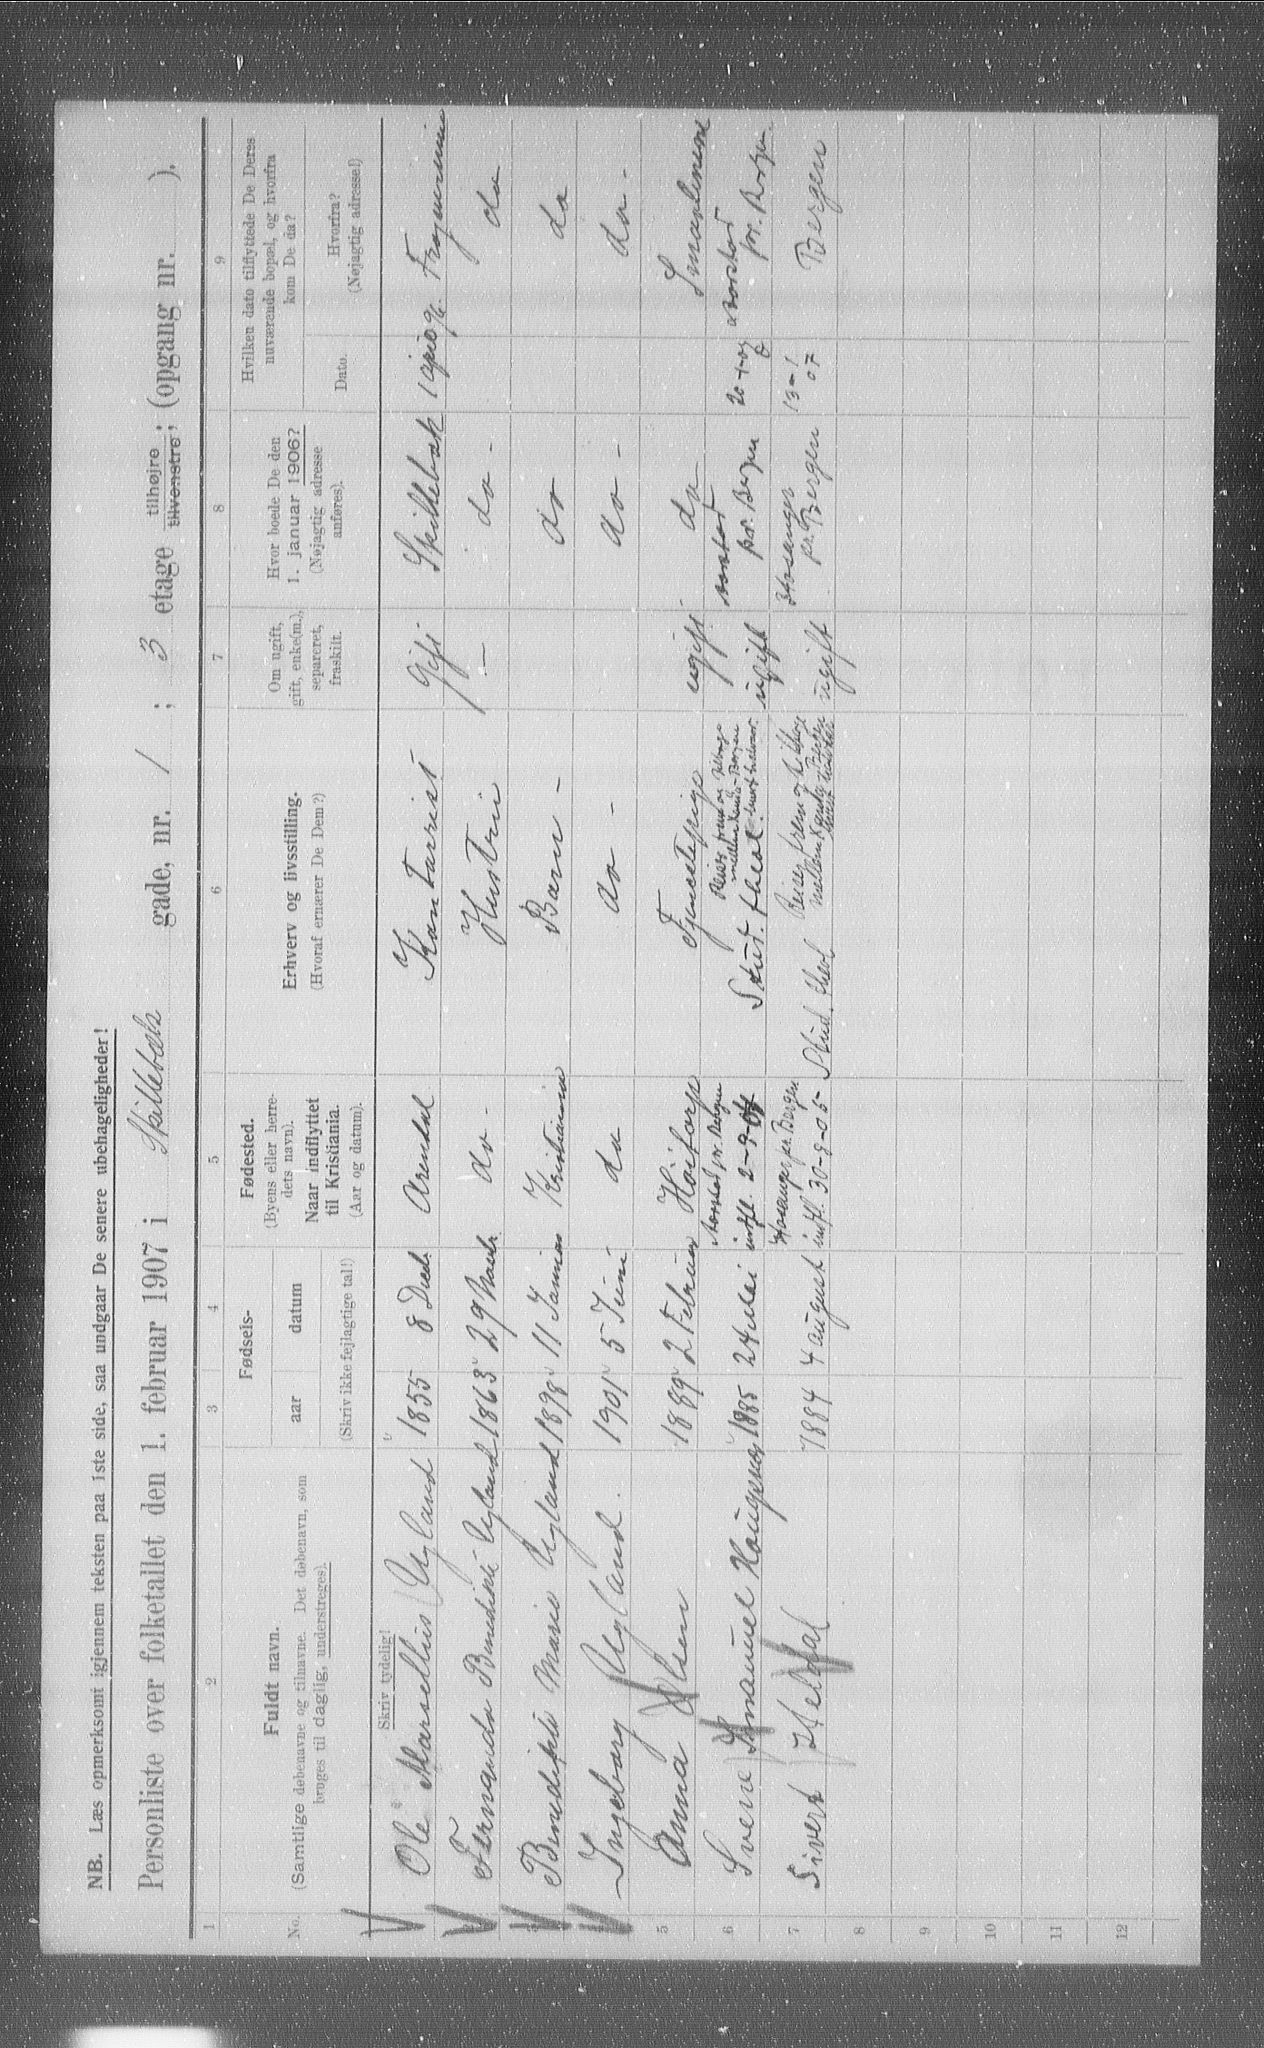 NB. Læs opmerksomt igjennem teksten paa 1ste side, saa undgaar De senere ubehageligheder!
Personliste over folketallet den 1. februar 1907 i Skillebæks gade, nr. 1 ; 3 etage tilhøjre tilvenstre; (opgang nr. ).
1 2 3 4 5 6 7 8 9
No.
Fuldt navn.
(Samtlige døbenavne og tilnavne. Det døbenavn, som
bruges til daglig, understreges).
Fødsels-
aar datum
(Skriv ikke fejlagtige tal!)
Fødested.
(Byens eller herre-
dets navn).
Naar indflyttet
til Kristiania.
(Aar og datum).
Erhverv og livsstilling.
(Hvoraf ernærer De Dem?)
Om ugift,
gift, enke(m.),
separeret,
fraskilt.
Hvor boede De den
1. januar 1906?
(Nøjagtig adresse
anføres).
Hvilken dato tilflyttede De Deres
nuværende bopæl, og hvorfra
kom De da?
Dato.
Hvorfra?
(Nøjagtig adresse!)
Skriv tydelig!
Ole Marsellius Ugland 1855 8 Decb. Arendal Kontorist Gift Skillebæk
Fernanda Benedikte Ugland 1863 29 do - Hustru - do - do
Benedikte Marie Ugland 1898 11 Januar Kristiania Barn - do do
Ingeborg Ugland. 1901 5 Juni do do - do - do -
5 Anna Olsen 1889 2 Februar Tjenestepige ugift do Smaalenene
6 Sverre Emanuel 1885 24 Mai indfl. 2-9- Stud. theol. ugift pr. Bergen pr. Bergen
7 Sivert Heldal 1884 4 august Hosanger pr. Bergen indfl. 30-8-05 Stud. theol Reiser frem og tilbage mellem ugift Hosanger pr. Bergen 13-1 07 Bergen
8
9
10
11
12